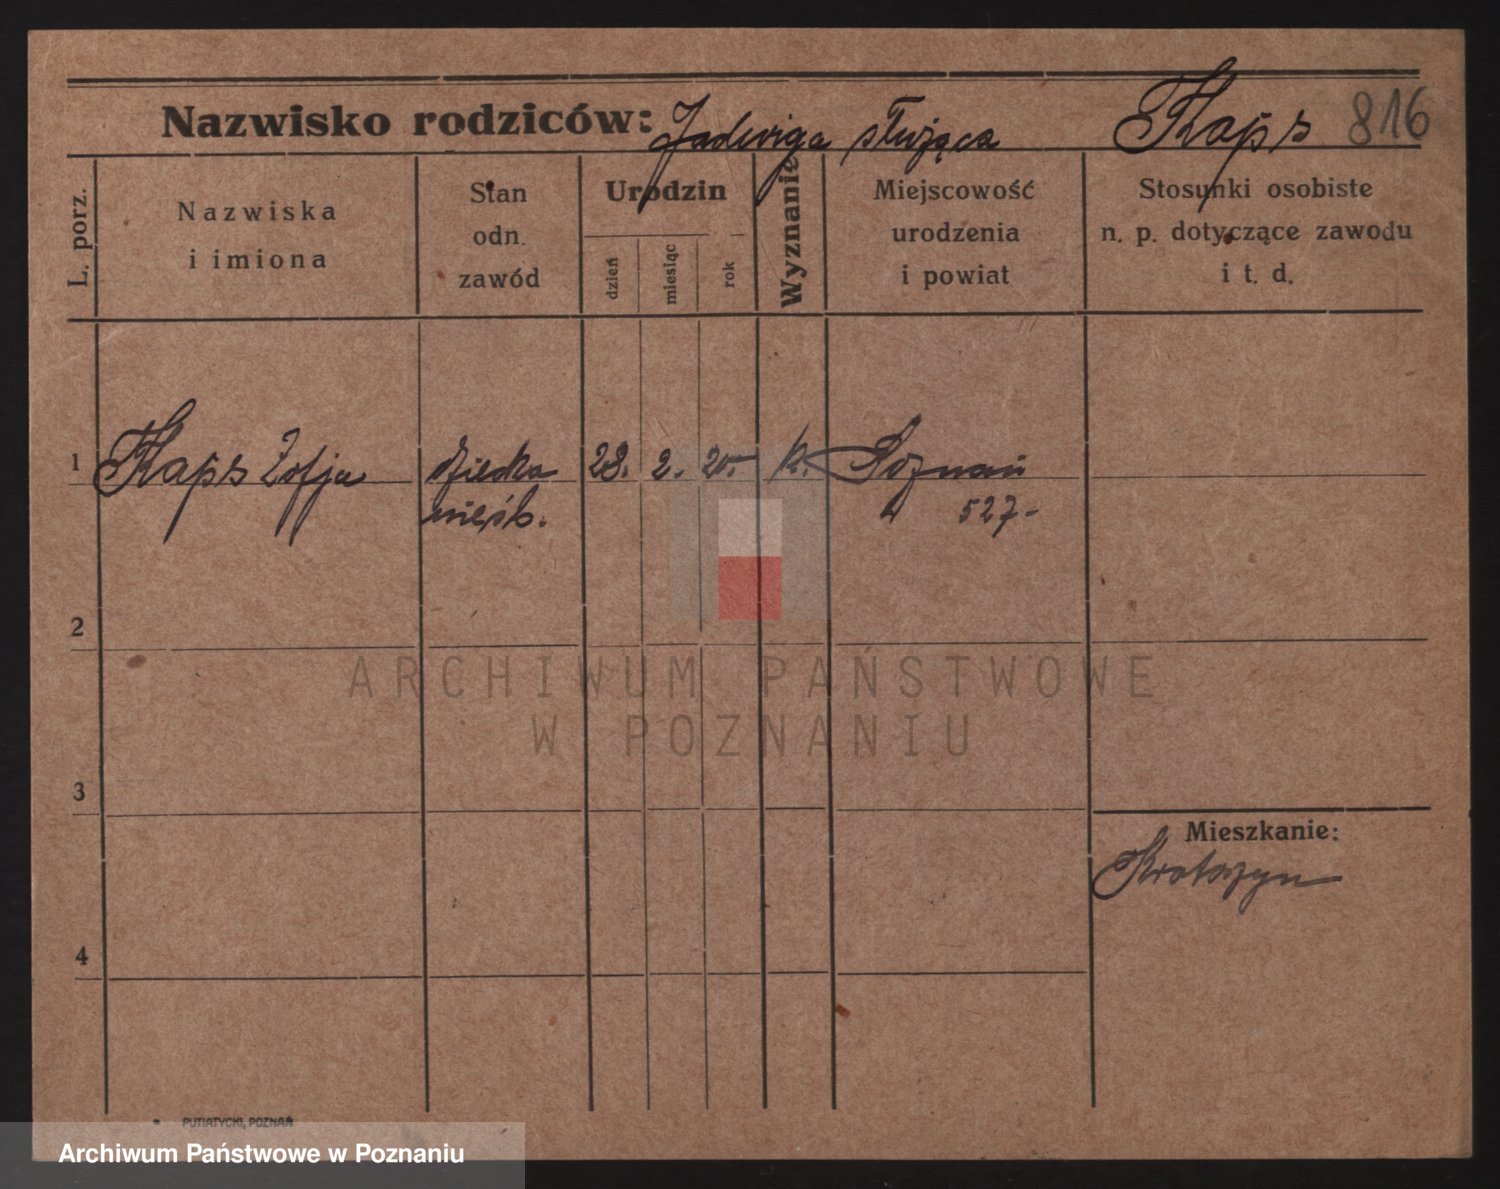 Nazwisko rodziców: Jadwiga służąca Kaps 816
L. porz.
Nazwiska
i imiona
Stan
odn.
zawód
Urodzin
dzień
miesiąc
rok
Wyznanie
Miejscowość
urodzenia
i powiat
Stosunki osobiste
n. p. dotyczące zawodu
i t. d.
1 Kaps Zofja 28. 2. 20. k. Poznań
nieśb. 527-
2
3
4
Mieszkanie:
Krotoszyn
PUTIATYCKI, POZNAŃ
ARCHIWUM PAŃSTWOWE
W POZNANIU
Archiwum Państwowe w Poznaniu